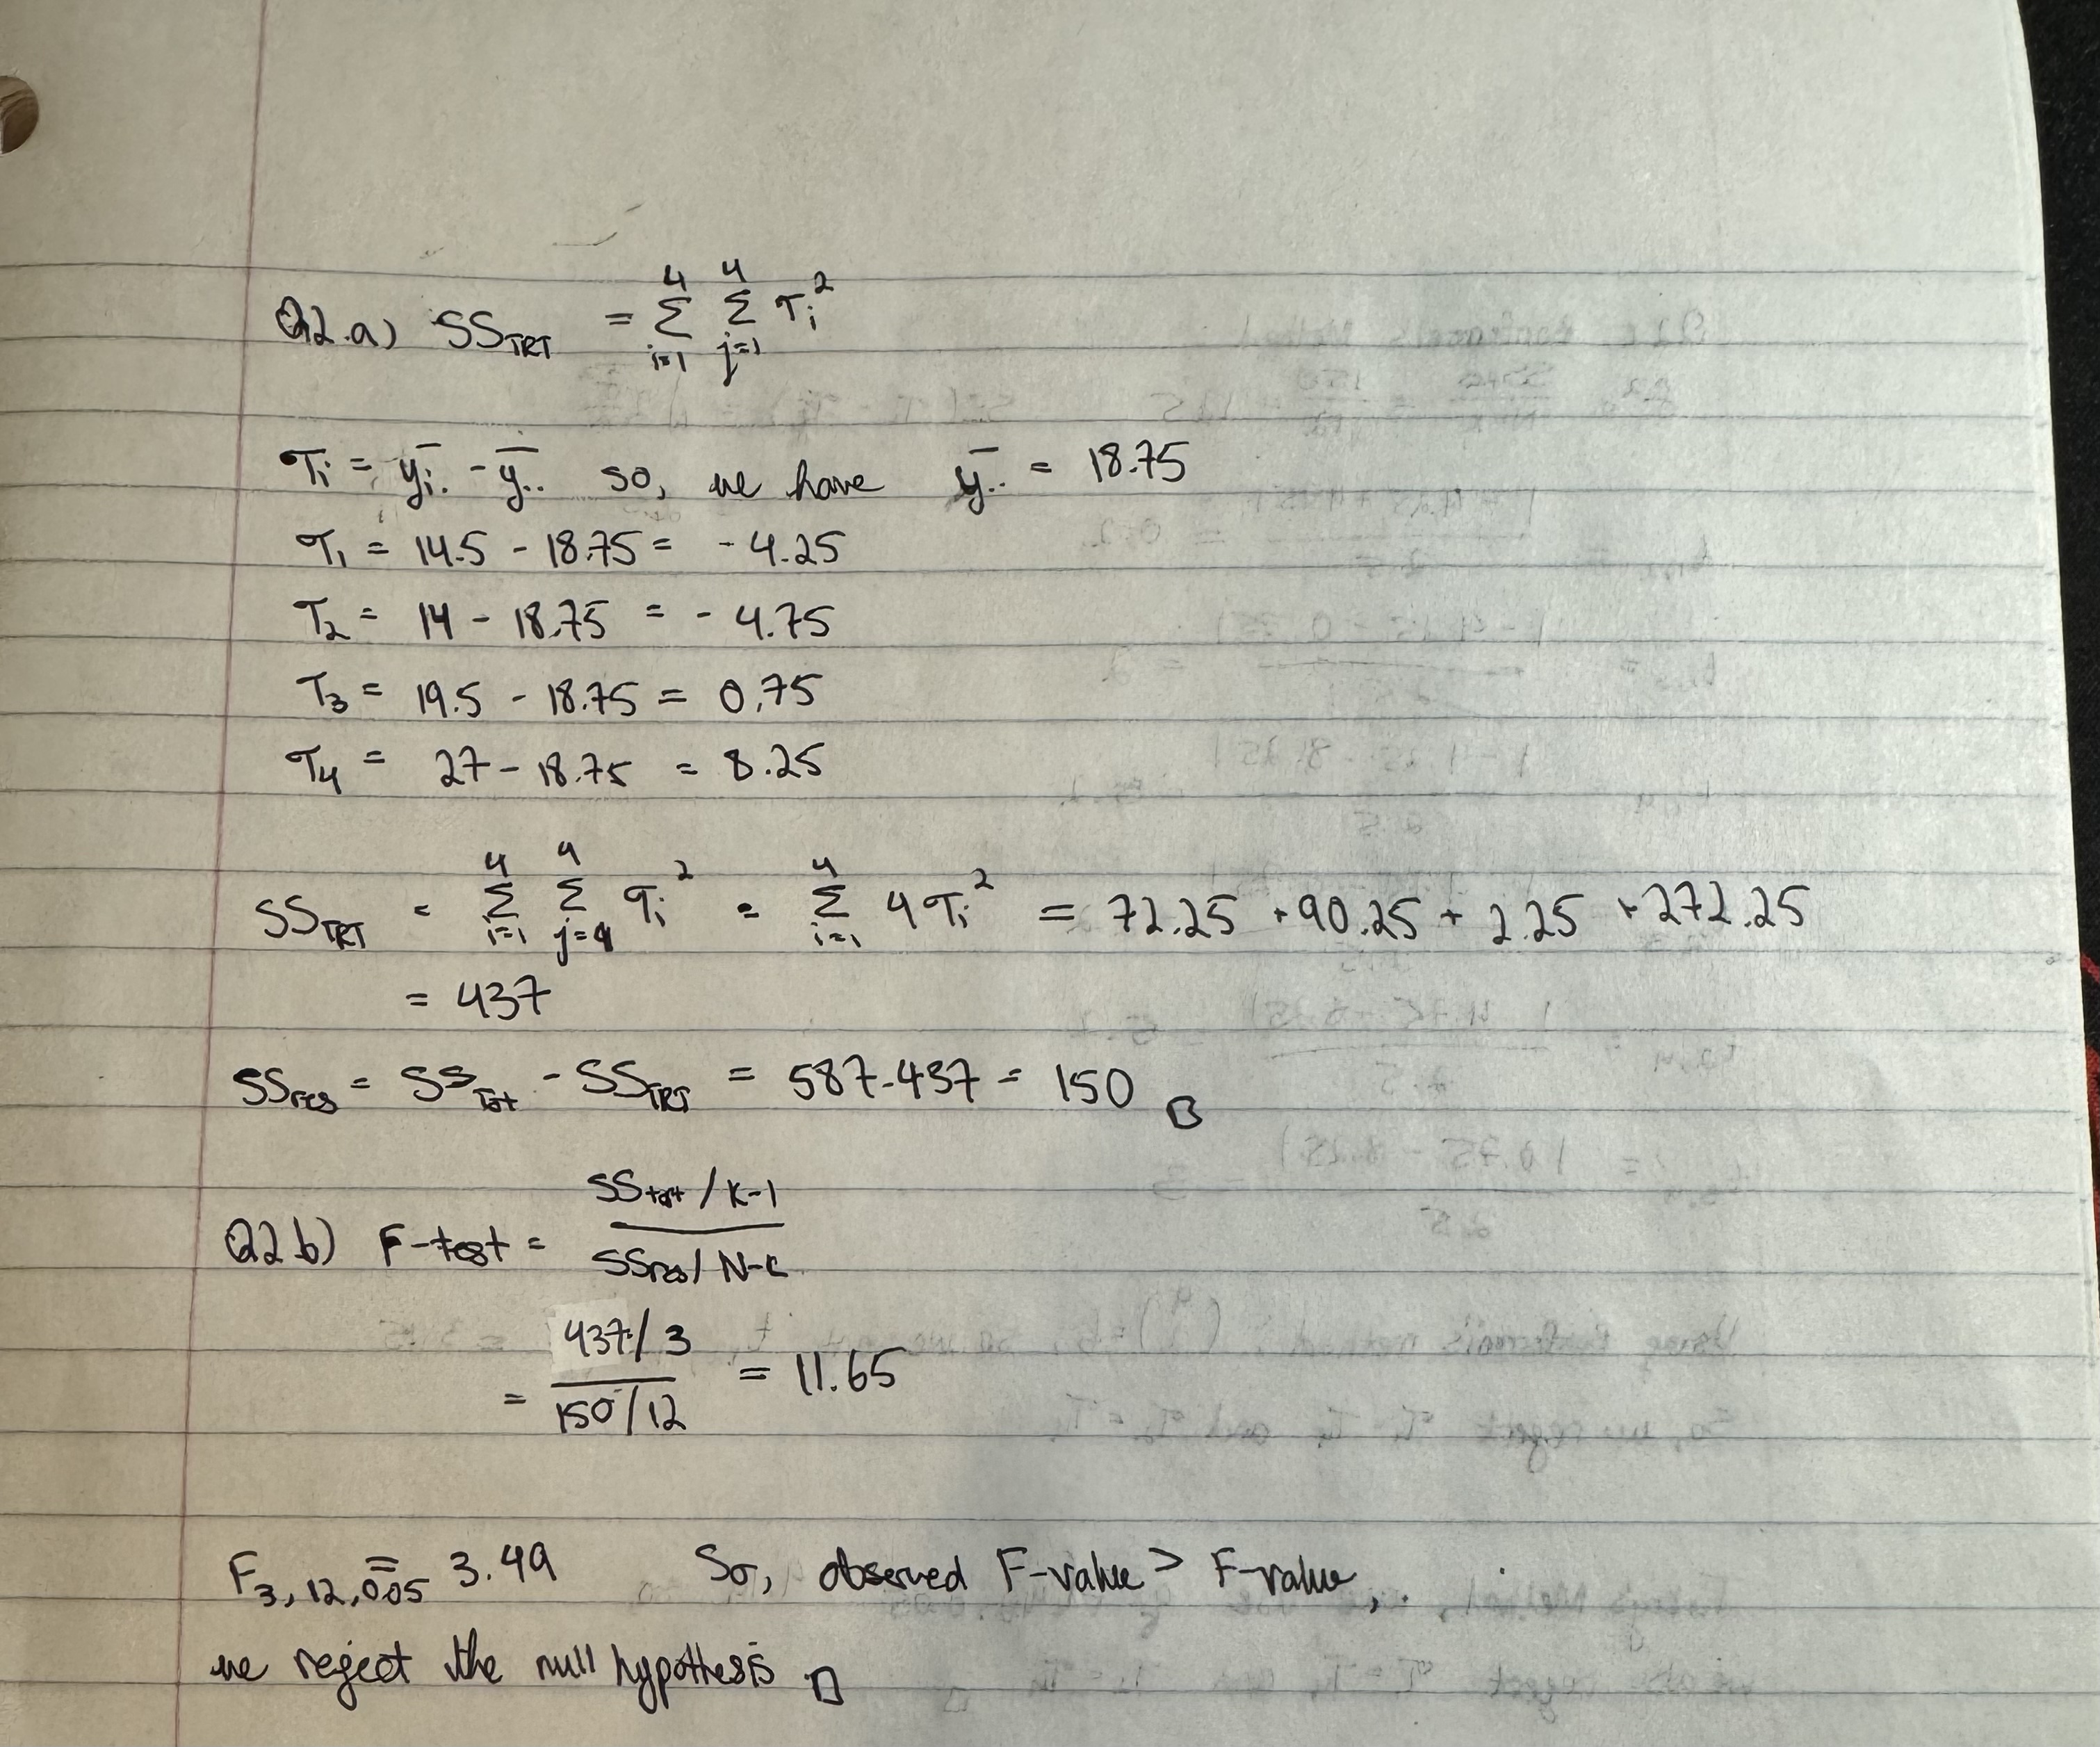 Q2.a) SS_TRT = Σ_{i=1}^{4} Σ_{j=1}^{4} τ_i^2
τ_i = ȳ_i. - ȳ.. so, we have ȳ.. = 18.75
τ_1 = 14.5 - 18.75 = -4.25
τ_2 = 14 - 18.75 = -4.75
τ_3 = 19.5 - 18.75 = 0.75
τ_4 = 27 - 18.75 = 8.25
SS_TRT = Σ_{i=1}^{4} Σ_{j=1}^{4} τ_i^2 = Σ_{i=1}^{4} 4τ_i^2 = 72.25 + 90.25 + 2.25 + 272.25
= 437
SS_res = SS_Tot - SS_TRT = 587-437 = 150 □
Q2b) F-test = (SS_trt / K-1) / (SS_res / N-K)
= (437/3) / (150/12) = 11.65
F_{3,12,0.05} = 3.49 So, observed F-value > F-value,
we reject the null hypothesis □